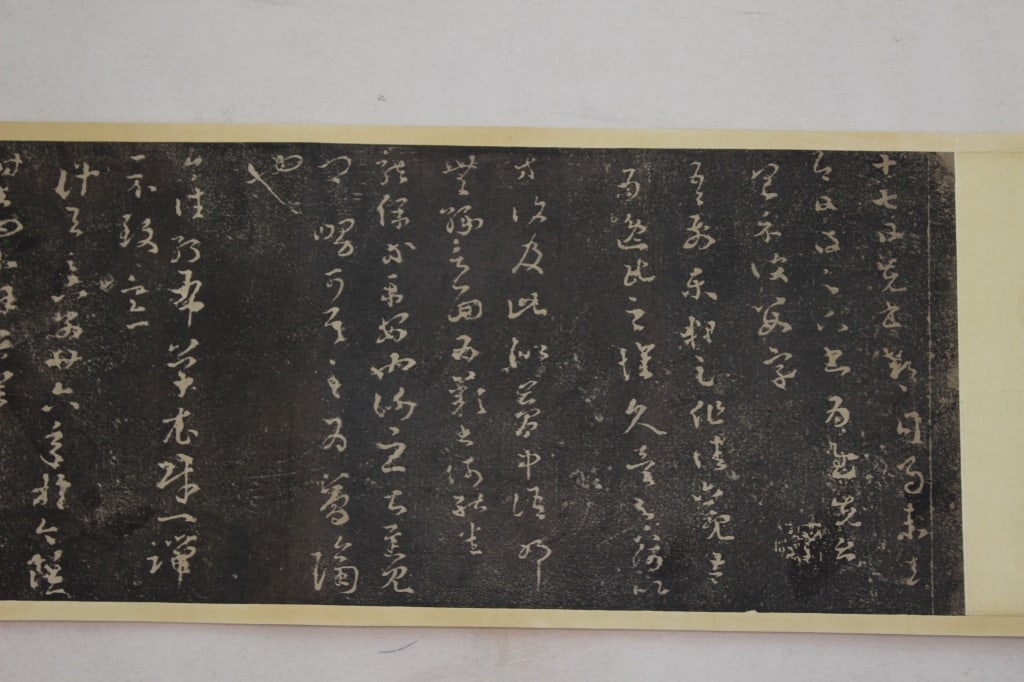 十七日先書郗司馬未去
即日得足下書為慰先書
以具示復數字
吾前東粗足作佳觀吾
為逸民之懷久矣足下何以
方復及此似夢中語耶
無緣言面為歎書何能悉
龍保等平安也謝之甚遲見
卿舅可耳至為簡隔
也
今往絲布單衣財一端
示致意
計與足下別廿六年於今雖